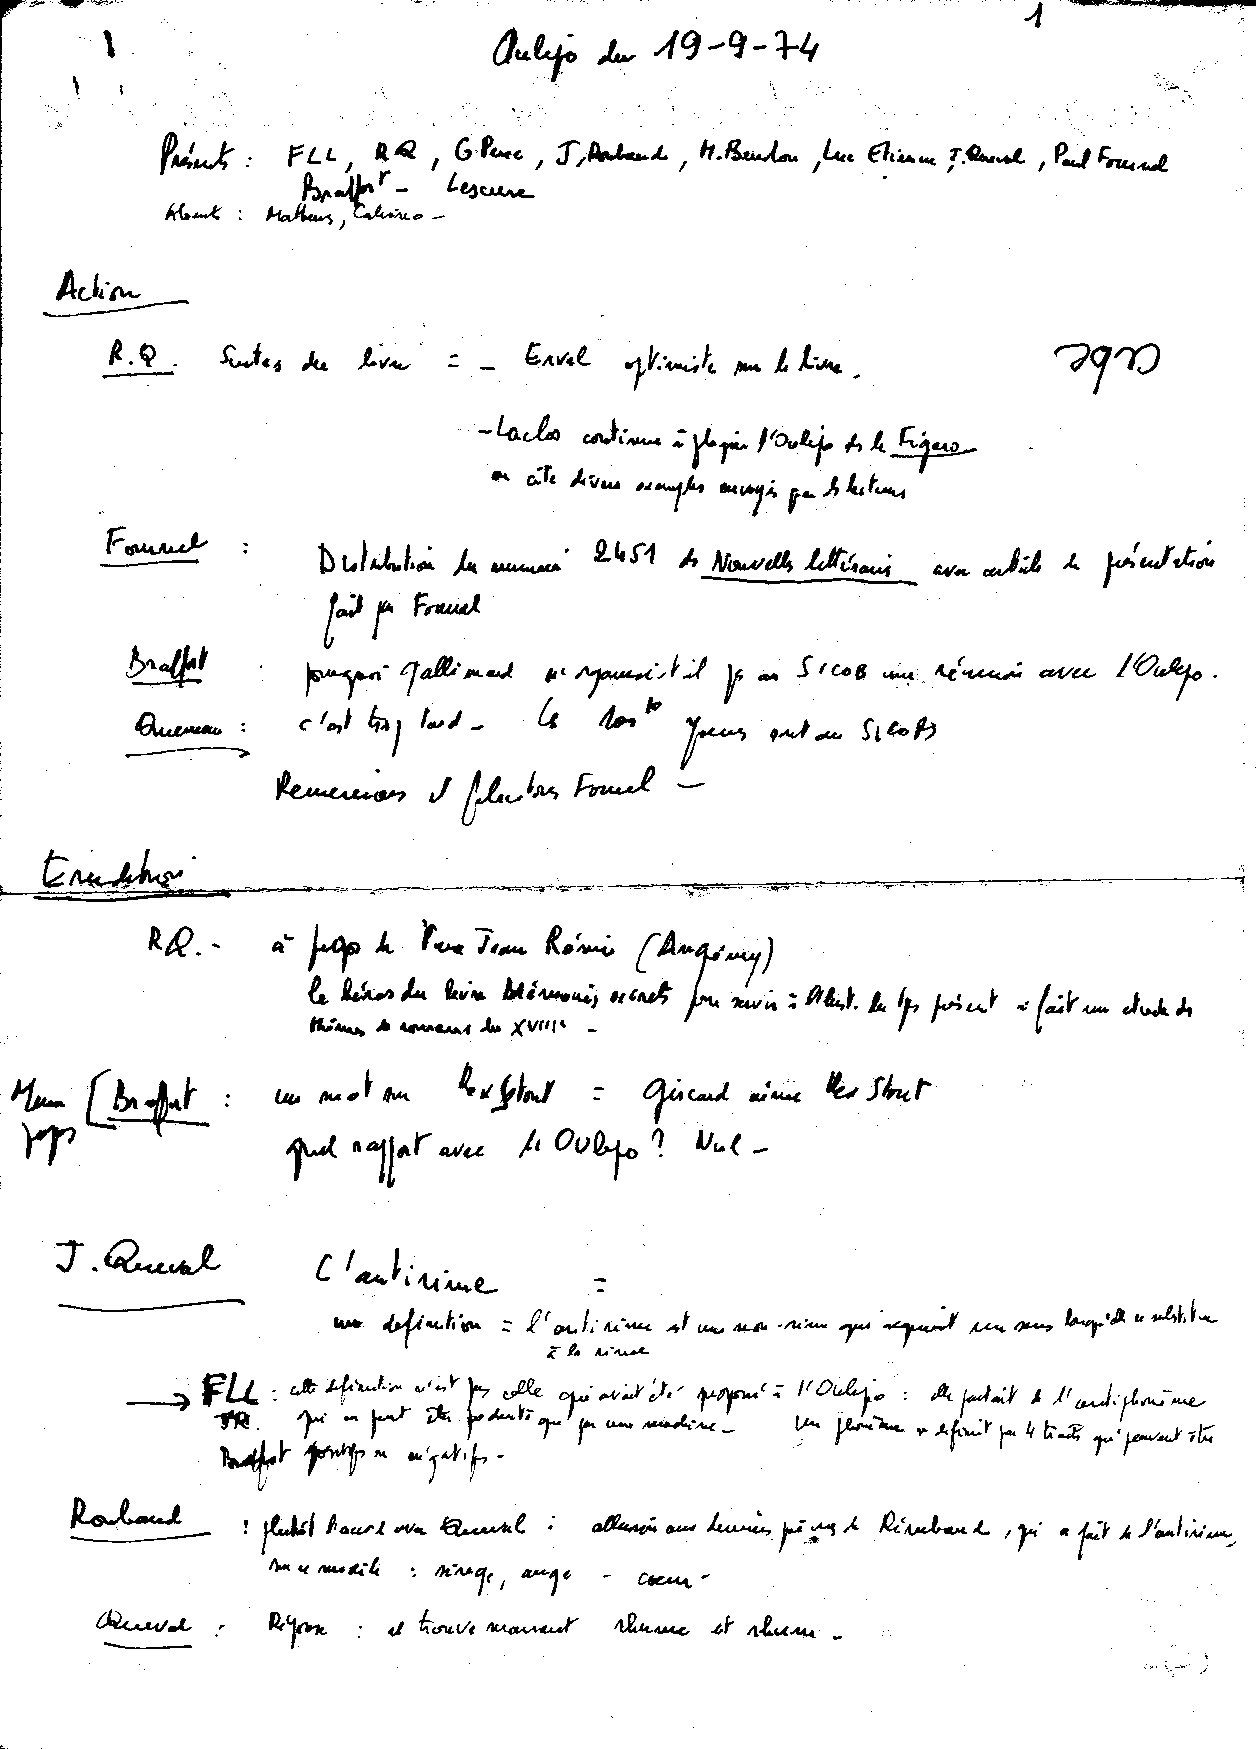 1
Oulipo du 19-9-74
Présents : FLL, RQ, G. Perec, J. Roubaud, M. Benabou, Luc Etienne, J. Queval, Paul Fournel
Braffort - Lescure
Absents : Mathews, Calvino -
Action
R.Q. Suites du livre = - Erval optimiste sur le livre.
- Laclos continue à plagier l'Oulipo ds le Figaro
on cite divers exemples envoyés par ds lecteurs
Fournel : Distribution du numéro 2451 des Nouvelles littéraires avec article de présentation
fait par Fournel
Braffort : pourquoi Gallimard n'organiserait il pas au SICOB une réunion avec l'Oulipo.
Queneau : c'est trop tard - Les gens sont au SICOB
Remercions et félicitons Fournel -
Erudition
RQ. - à propos de Pierre Jean Rémi (Angémy)
le héros du livre Mémoires secrets pour servir à l'Hist. du tps présent a fait une etude ds
thèmes de romans du XVIIIe -
Meme propos [ Braffort : un mot sur Rex Stout = Giscard aime Rex Stout
quel rapport avec l'Oulipo ? Nul -
J. Queval L'antirime =
une definition = l'antirime est une non-rime qui acquiert un sens lorsqu'elle se substitue
à la rime
→ FLL : cette définition n'est pas celle qui avait été proposé à l'Oulipo : elle partait de l'antiphonème
JR. qui ne peut être produite que par une machine - Un phonème se définit par 4 traits qui peuvent être
Braffort positifs ou négatifs -
Roubaud : plutôt d'accord avec Queval : allusion aux derniers poèmes de Rimbaud, qui a fait de l'antirime,
sur ce modèle : singe, ange - coeur -
Queval : Réponse : il trouve marrant rhume et rhum -